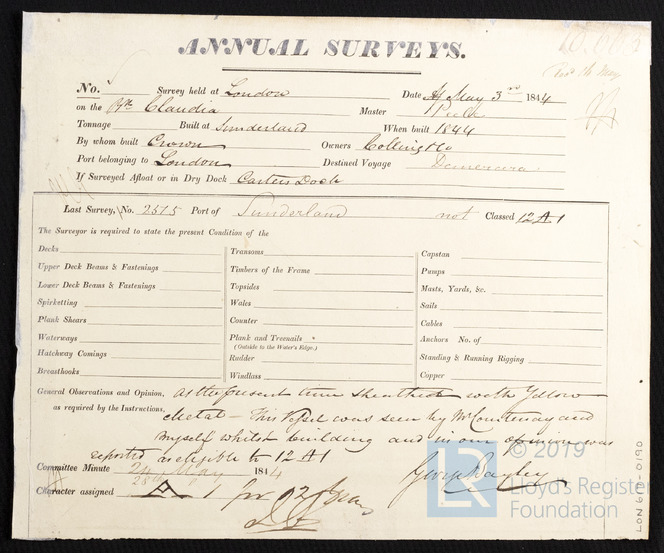 ANNUAL SURVEYS.
No. Survey held at London Date May 3rd 1844
on the Claudia Master
Tonnage Built at Sunderland When built 1844
By whom built Crown Owners Colling & Co
Port belonging to London Destined Voyage Demerara
If Surveyed Afloat or in Dry Dock Carters Dock
Last Survey, No. 2615 Port of Sunderland not Classed 12 A 1
The Surveyor is required to state the present Condition of the
Decks
Upper Deck Beams & Fastenings
Lower Deck Beams & Fastenings
Spirketting
Plank Shears
Waterways
Hatchway Comings
Breasthooks
Transoms
Timbers of the Frame
Topsides
Wales
Counter
Plank and Treenails
(Outside to the Water's Edge.)
Rudder
Windlass
Capstan
Pumps
Masts, Yards, &c.
Sails
Cables
Anchors No. of
Standing & Running Rigging
Copper
General Observations and Opinion, at the present time sheathed with Yellow
as required by the Instructions, Metal - This Vessel was seen by Mr Courtenay and
myself whilst building and in our opinion was
reported as eligible to 12 A 1
George Bayley
Committee Minute 24 May 1844
28th
Character assigned A 1 for 12 Years
© 2019
LR
Lloyd's Register
Foundation